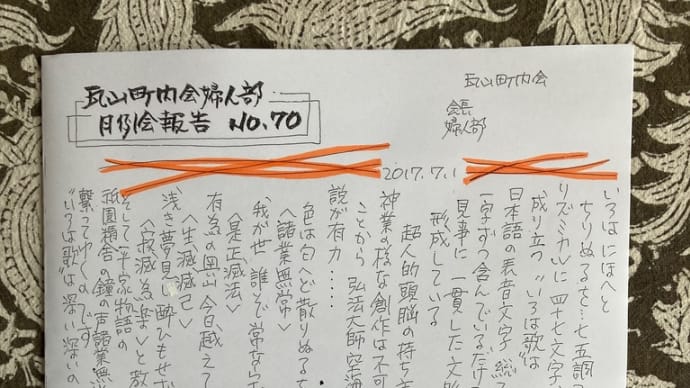 瓦山町内会婦人部
月例会報告 NO.70
瓦山町内会
会長
婦人部
2017.7.1
いろはにほへと
ちりぬるを…七五調コ
リズミカルに四十七文字カ
成り立つ“いろは歌は
日本語の表音文字 総て
一字ずつ含んでいるだけ
見事に一貫した文脈
形成している
超人的頭脳の持ち主
神業の様な創作は不可
ことから 弘法大師 空海
説が有力……
色は匂へど散りぬるを
〈諸業無常〉
我が世 誰そ 常ならむ
〈是正滅法〉
有為の奥山 今日越えて
〈生滅滅己〉
浅き夢見じ 酔ひもせず
〈寂滅為楽〉と教
そして“平家物語の
祇園精舎の鐘の声 諸業無
繋ってゆくのです
“いろは歌”は深い深いの